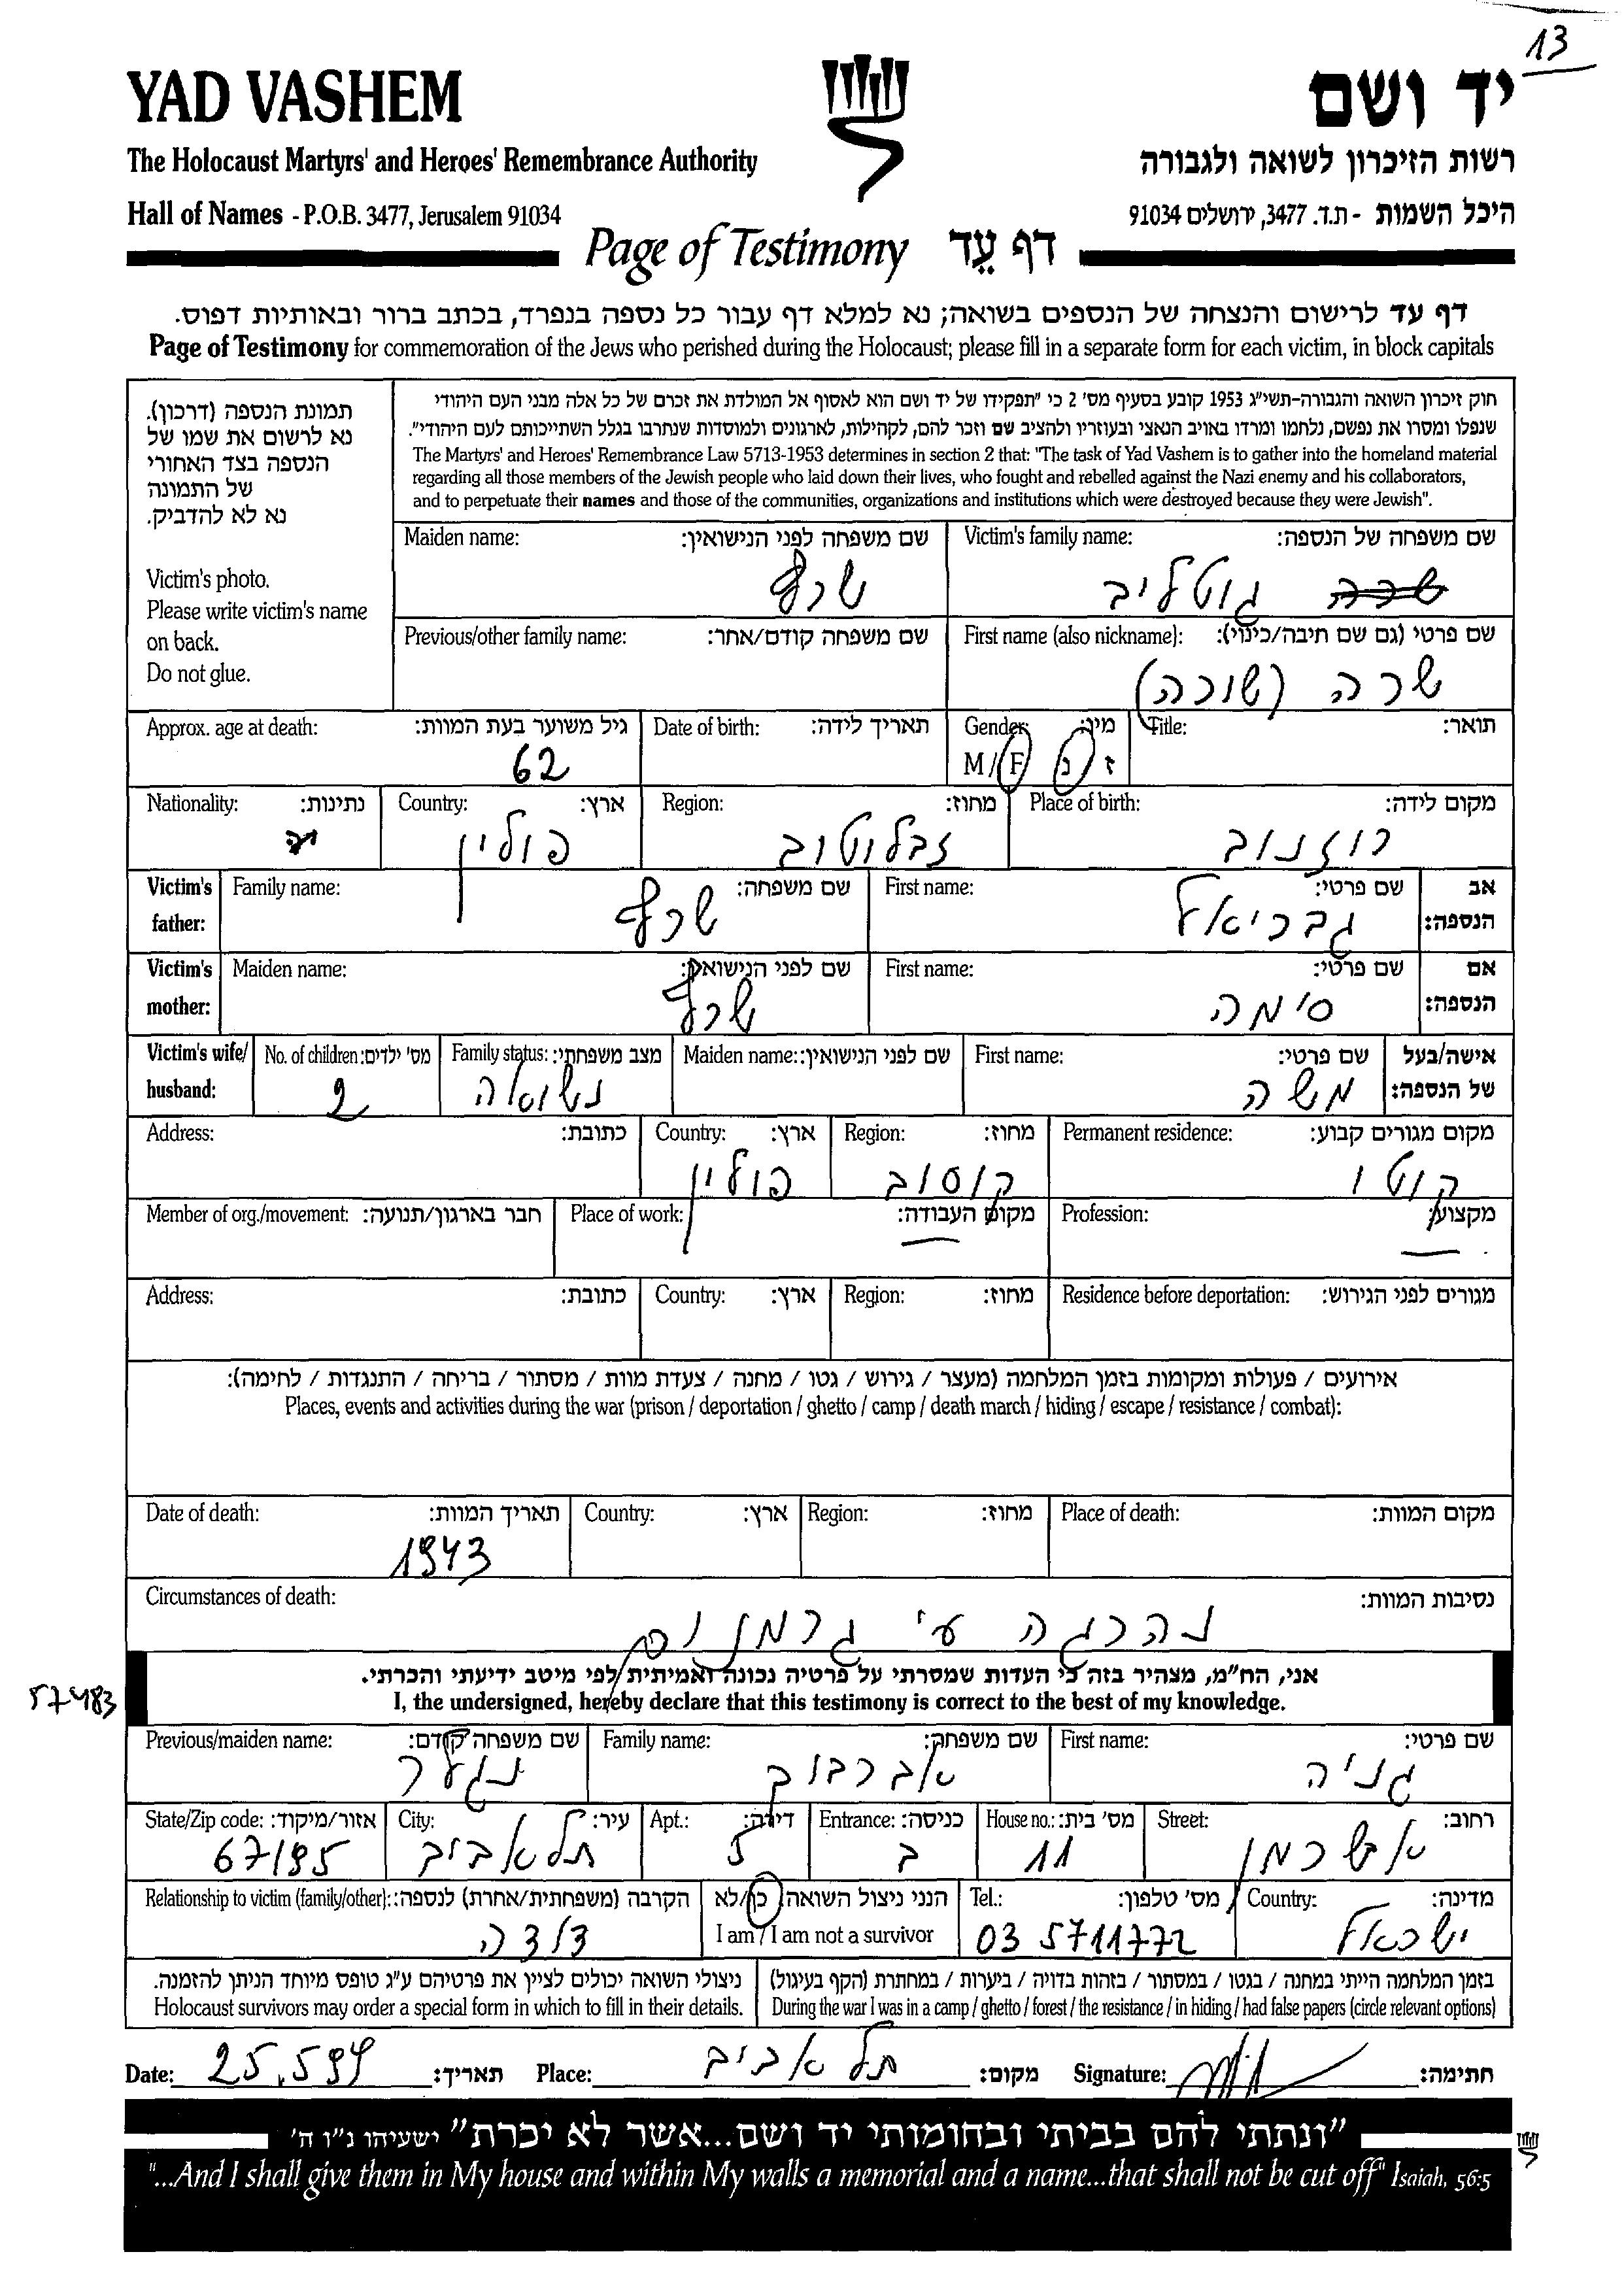 13
YAD VASHEM יד ושם
The Holocaust Martyrs' and Heroes' Remembrance Authority רשות הזיכרון לשואה ולגבורה
Hall of Names - P.O.B. 3477, Jerusalem 91034 היכל השמות - ת.ד. 3477, ירושלים 91034
Page of Testimony דף עֵד
דף עד לרישום והנצחה של הנספים בשואה; נא למלא דף עבור כל נספה בנפרד, בכתב ברור ובאותיות דפוס.
Page of Testimony for commemoration of the Jews who perished during the Holocaust; please fill in a separate form for each victim, in block capitals
תמונת הנספה (דרכון).
נא לרשום את שמו של
הנספה בצד האחורי
של התמונה
נא לא להדביק.
Victim's photo.
Please write victim's name
on back.
Do not glue.
חוק זיכרון השואה והגבורה-תשי"ג 1953 קובע בסעיף מס' 2 כי "תפקידו של יד ושם הוא לאסוף אל המולדת את זכרם של כל אלה מבני העם היהודי
שנפלו ומסרו את נפשם, נלחמו ומרדו באויב הנאצי ובעוזריו ולהציב שם וזכר להם, לקהילות, לארגונים ולמוסדות שנחרבו בגלל השתייכותם לעם היהודי".
The Martyrs' and Heroes' Remembrance Law 5713-1953 determines in section 2 that: "The task of Yad Vashem is to gather into the homeland material
regarding all those members of the Jewish people who laid down their lives, who fought and rebelled against the Nazi enemy and his collaborators,
and to perpetuate their names and those of the communities, organizations and institutions which were destroyed because they were Jewish".
שם משפחה של הנספה: Victim's family name: שם משפחה לפני הנישואין: Maiden name:
גוטליב שרף
שם פרטי (גם שם חיבה/כינוי): First name (also nickname): שם משפחה קודם/אחר: Previous/other family name:
שרה (שורה)
תואר: Title: מין: Gender: תאריך לידה: Date of birth: גיל משוער בעת המוות: Approx. age at death:
ז / נ M / F 62
מקום לידה: Place of birth: מחוז: Region: ארץ: Country: נתינות: Nationality:
רוזנוב זבלוטוב פולין
אב שם פרטי: First name: שם משפחה: Family name: Victim's
הנספה: גבריאל שרף father:
אם שם פרטי: First name: שם לפני הנישואין: Maiden name: Victim's
הנספה: סימה שרף mother:
אישה/בעל שם פרטי: First name: שם לפני הנישואין: Maiden name: מצב משפחתי: Family status: מס' ילדים: No. of children: Victim's wife/
של הנספה: משה נשואה 2 husband:
מקום מגורים קבוע: Permanent residence: מחוז: Region: ארץ: Country: כתובת: Address:
קוטו קוסוב פולין
מקצוע: Profession: מקום העבודה: Place of work: חבר בארגון/תנועה: Member of org./movement:
מגורים לפני הגירוש: Residence before deportation: מחוז: Region: ארץ: Country: כתובת: Address:
אירועים / פעולות ומקומות בזמן המלחמה (מעצר / גירוש / גטו / מחנה / צעדת מוות / מסתור / בריחה / התנגדות / לחימה):
Places, events and activities during the war (prison / deportation / ghetto / camp / death march / hiding / escape / resistance / combat):
מקום המוות: Place of death: מחוז: Region: ארץ: Country: תאריך המוות: Date of death:
1943
נסיבות המוות: Circumstances of death:
נהרגה ע"י גרמנים
אני, הח"מ, מצהיר בזה כי העדות שמסרתי על פרטיה נכונה ואמיתית לפי מיטב ידיעתי והכרתי.
I, the undersigned, hereby declare that this testimony is correct to the best of my knowledge.
57483
שם פרטי: First name: שם משפחה: Family name: שם משפחה קודם: Previous/maiden name:
גניה אברבוק
רחוב: Street: מס' בית: House no.: כניסה: Entrance: דירה: Apt.: עיר: City: אזור/מיקוד: State/Zip code:
אשרמן 11 ב 5 תל אביב 67195
מדינה: Country: מס' טלפון: Tel.: הנני ניצול השואה: כן/לא הקרבה (משפחתית/אחרת) לנספה: Relationship to victim (family/other):
ישראל 03 5711772 I am / I am not a survivor דודה
בזמן המלחמה הייתי במחנה / בגטו / במסתור / בזהות בדויה / ביערות / במחתרת (הקף בעיגול) ניצולי השואה יכולים לציין את פרטיהם ע"ג טופס מיוחד הניתן להזמנה.
During the war I was in a camp / ghetto / forest / the resistance / in hiding / had false papers (circle relevant options) Holocaust survivors may order a special form in which to fill in their details.
Date: 25.5 99 תאריך: Place: תל אביב מקום: Signature: חתימה:
"ונתתי להם בביתי ובחומותי יד ושם...אשר לא יכרת" ישעיהו נ"ו ה'
"...And I shall give them in My house and within My walls a memorial and a name...that shall not be cut off" Isaiah, 56:5